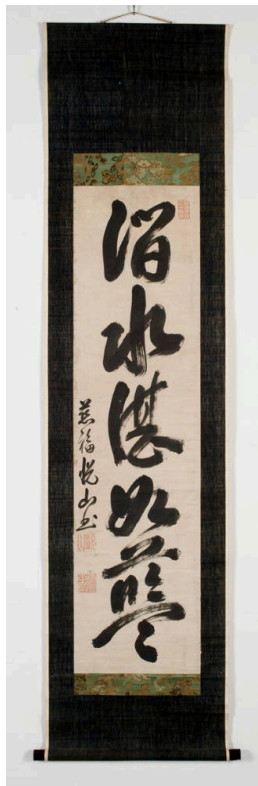 澗水湛如藍
慈福悅山書